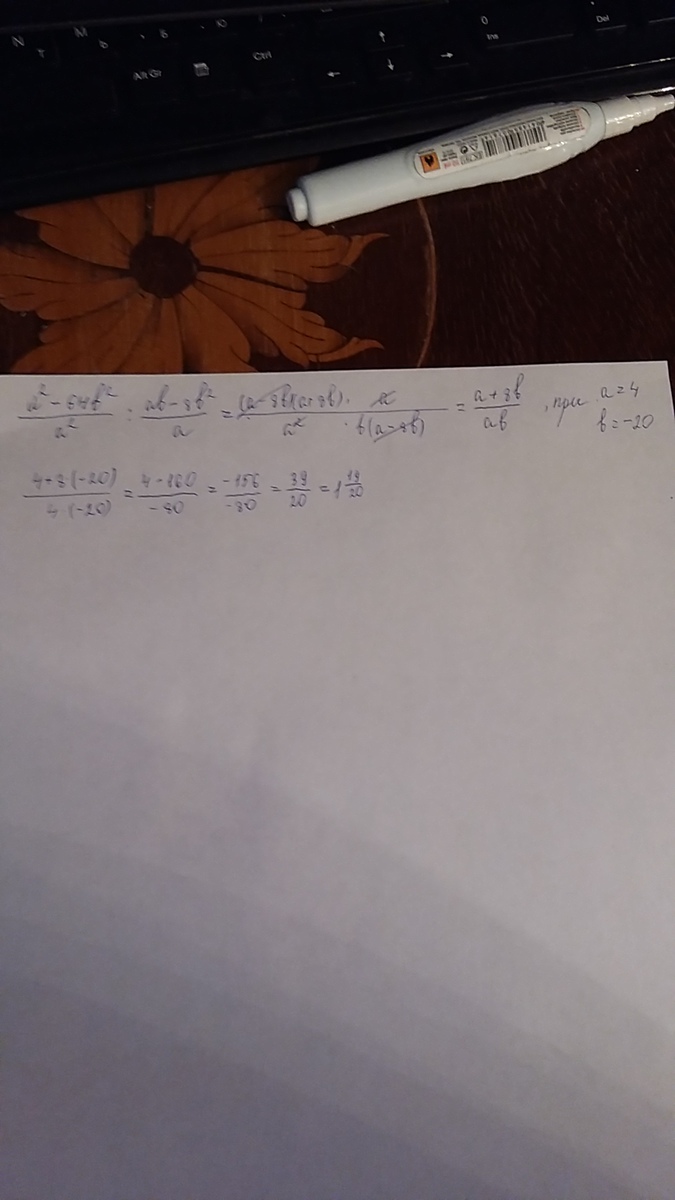 0
Ins
Del
Alt Gr
Ctrl
a² - 64b² / a² : ab - 8b² / a = (a-8b)(a+8b) · a / a² · b(a-8b) = a+8b / ab , при a=4
b=-20
4+8·(-20) / 4·(-20) = 4-160 / -80 = -156 / -80 = 39 / 20 = 1 19/20